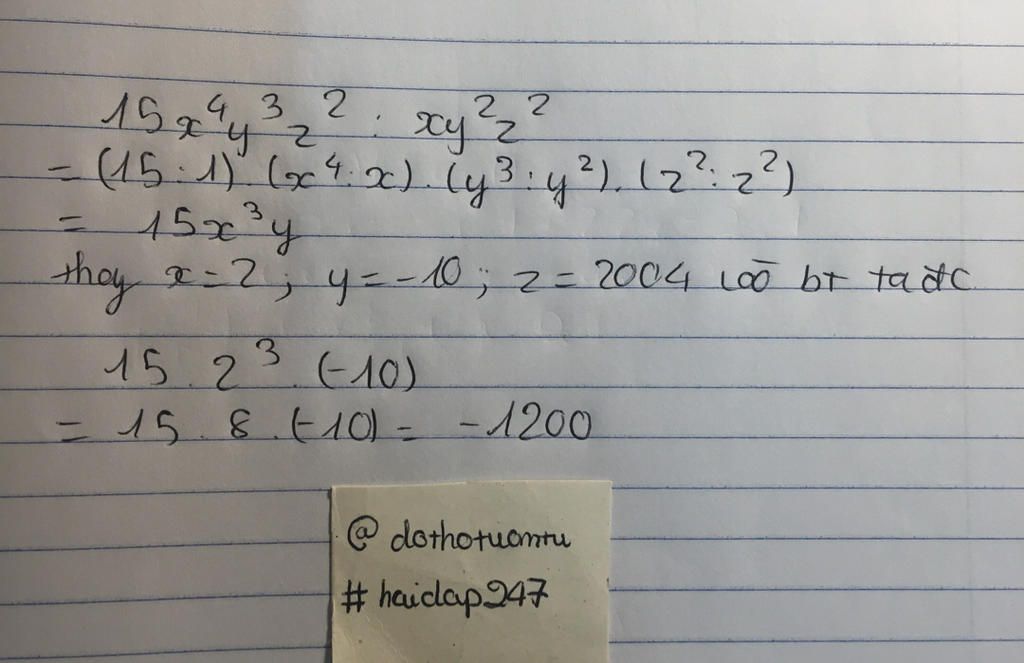 15x⁴y³z² : xy²z²
= (15 : 1) . (x⁴ : x) . (y³ : y²) . (z² : z²)
= 15x³y
thay x = 2 ; y = -10 ; z = 2004 bt ta đc
15 . 2³ . (-10)
= 15 . 8 . (-10) = -1200
@ dothotuomtu
# haidap247